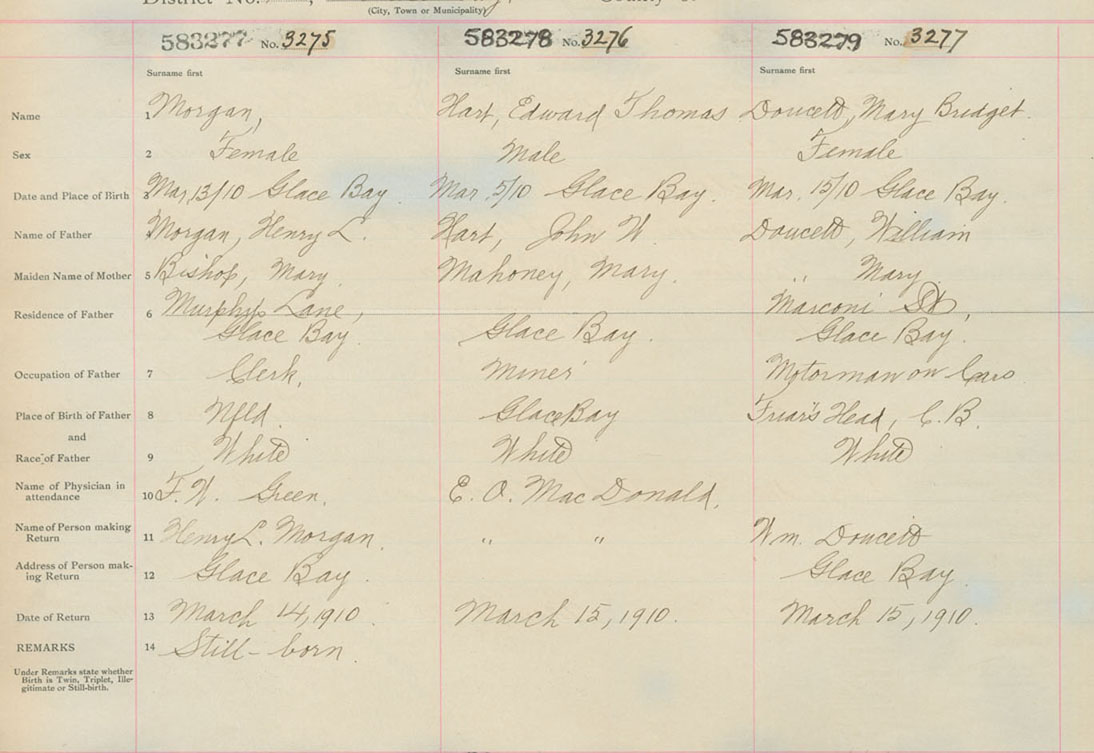 District No.
(City, Town or Municipality)
583277 No. 3275 583278 No. 3276 583279 No. 3277
Surname first Surname first Surname first
Name 1 Morgan, Hart, Edward Thomas Doucett, Mary Bridget.
Sex 2 Female Male Female
Date and Place of Birth 3 Mar, 13/10 Glace Bay Mar. 5/10 Glace Bay. Mar. 15/10 Glace Bay.
Name of Father Morgan, Henry L. Hart, John W. Doucett, William
Maiden Name of Mother 5 Bishop, Mary Mahoney, Mary. " Mary
Murphys Lane, Marconi St,
Residence of Father 6
Glace Bay. Glace Bay. Glace Bay.
Occupation of Father 7 Clerk, Miner Motorman on Cars
Place of Birth of Father 8 Nfld. Glace Bay Friar's Head, C. B.
and
Race of Father 9 White White White
Name of Physician in
attendance 10 F. W. Green. E. O. MacDonald.
Name of Person making
Return 11 Henry L. Morgan. " " Wm. Doucett
Address of Person mak-
ing Return 12 Glace Bay. Glace Bay.
Date of Return 13 March 14, 1910. March 15, 1910. March 15, 1910.
REMARKS 14 Still-born.
Under Remarks state whether
Birth is Twin, Triplet, Ille-
gitimate or Still-birth.